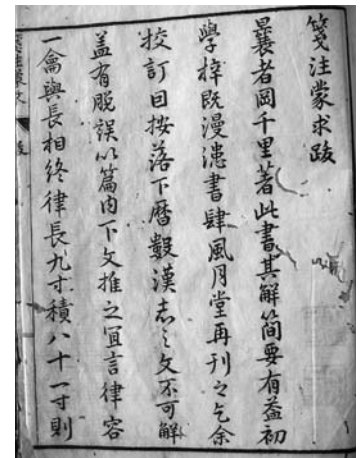 箋注蒙求跋
曩者岡千里著此書其解簡要有益初
學梓既漫漶書肆風月堂再刊之乞余
挍訂因按落下暦數漢志之文不可解
蓋有脫誤以篇内下文推之宜言律容
一龠與長相終律長九寸積八十一寸則